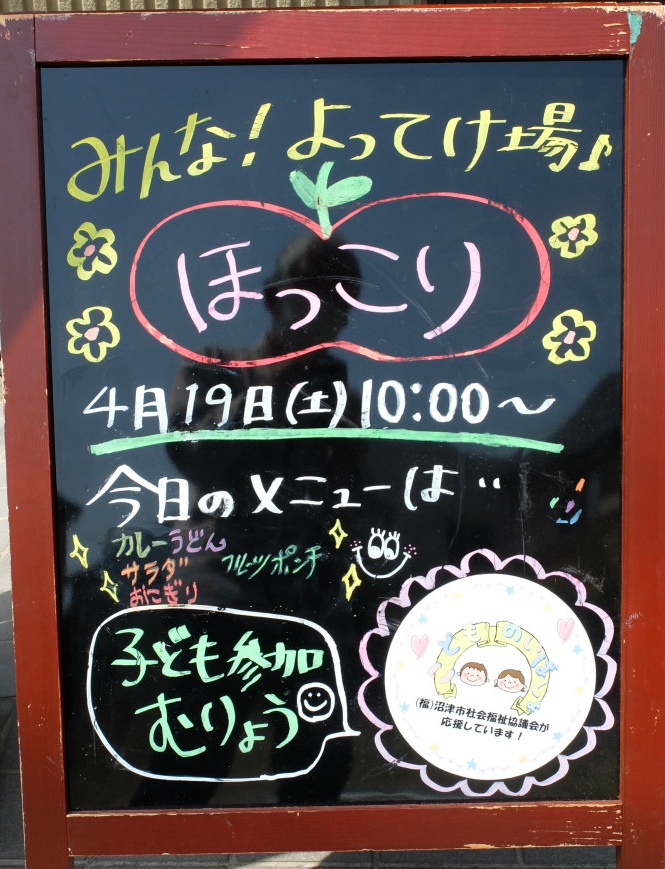 みんな！よってけ場♪
ほっこり
4月19日(土)10:00～
今日のメニューは‥
カレーうどん
サラダ
おにぎり
フルーツポンチ
子ども参加
むりょう
こども達のいばしょ
(福)沼津市社会福祉協議会が
応援しています！